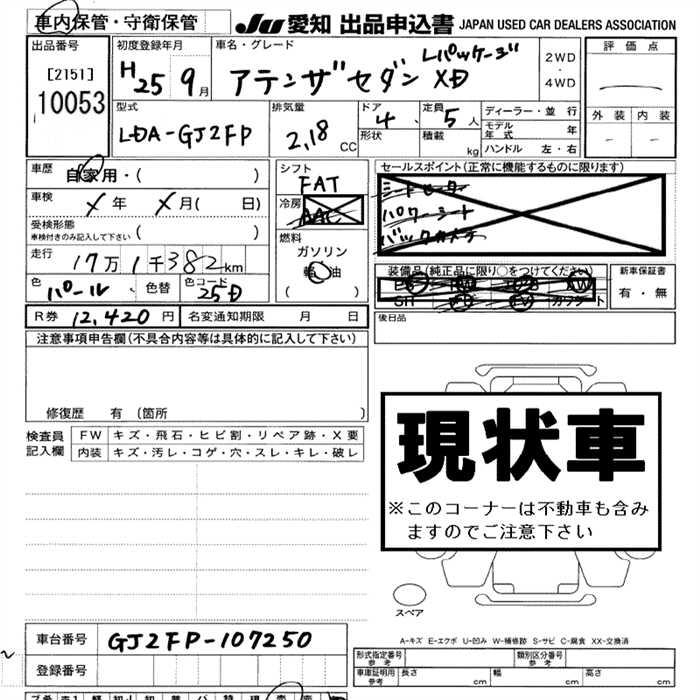 車内保管・守衛保管 JU 愛知 出品申込書 JAPAN USED CAR DEALERS ASSOCIATION
出品番号 初度登録年月 車名・グレード 2WD・4WD 評価点
[2151] H25 9月 アテンザセダン XD Lパッケージ
10053
型式 排気量 ドア 定員 ディーラー・並行 外装 内装
LDA-GJ2FP 2,18 CC 4 5人 モデル年式 年
形状 積載 kg ハンドル 左・右
車歴 自家用・( ) シフト セールスポイント(正常に機能するものに限ります)
FAT
車検 X年 X月( 日) 冷房 AAC シートヒーター
パワーシート
受検形態 車検付きのみ記入して下さい ( ) 燃料 バックカメラ
ガソリン
走行 17万1千382km 軽油 装備品(純正品に限り○をつけてください) 新車保証書
( ) PS PW AW 有・無
色 パール、 色替 色コード 25D カワシート
R券 12,420円 名変通知期限 月 日 後日品
注意事項申告欄(不具合内容等は具体的に記入して下さい)
修復歴 有 (箇所 )
現状車
※このコーナーは不動車も含み
ますのでご注意下さい
検査員 FW キズ・飛石・ヒビ割・リペア跡・X要
記入欄 内装 キズ・汚レ・コゲ・穴・スレ・キレ・破レ
スペア
A-キズ E-エクボ U-凹み W-補修跡 S-サビ C-腐食 XX-交換済
車台番号 GJ2FP-107250 形式指定番号 参考 類別区分番号 参考
登録番号 車庫証明用 参考 長さ cm 幅 cm 高さ cm